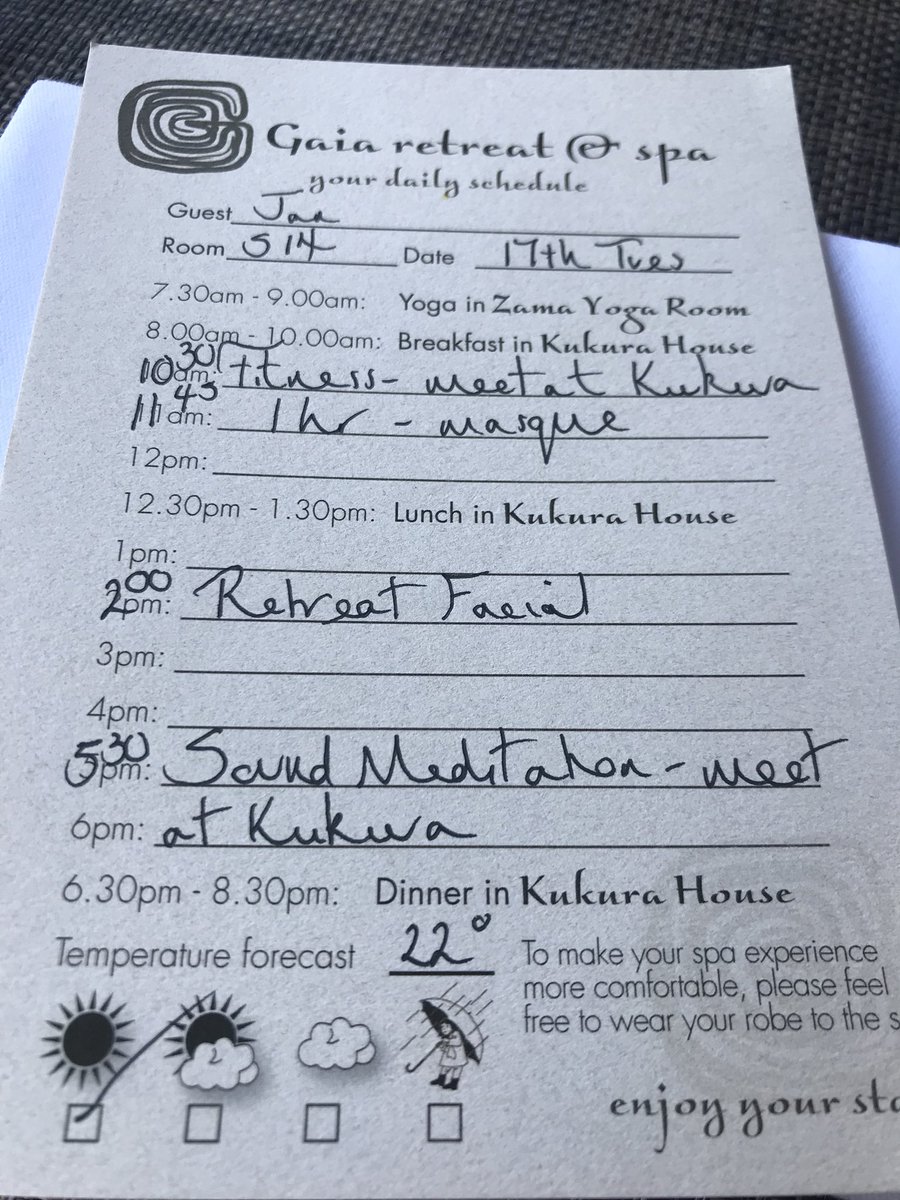 Gaia retreat & spa
your daily schedule
Guest Jan
Room S14 Date 17th Tues
7.30am - 9.00am: Yoga in Zama Yoga Room
8.00am - 10.00am: Breakfast in Kukura House
10 30 am: Fitness - meet at Kukura
11 45 am: 1 hr - masque
12pm:
12.30pm - 1.30pm: Lunch in Kukura House
1pm:
2 00 pm: Retreat Facial
3pm:
4pm:
5 30 pm: Sound Meditation - meet
6pm: at Kukura
6.30pm - 8.30pm: Dinner in Kukura House
Temperature forecast 22°
To make your spa experience
more comfortable, please feel
free to wear your robe to the s
enjoy your sta